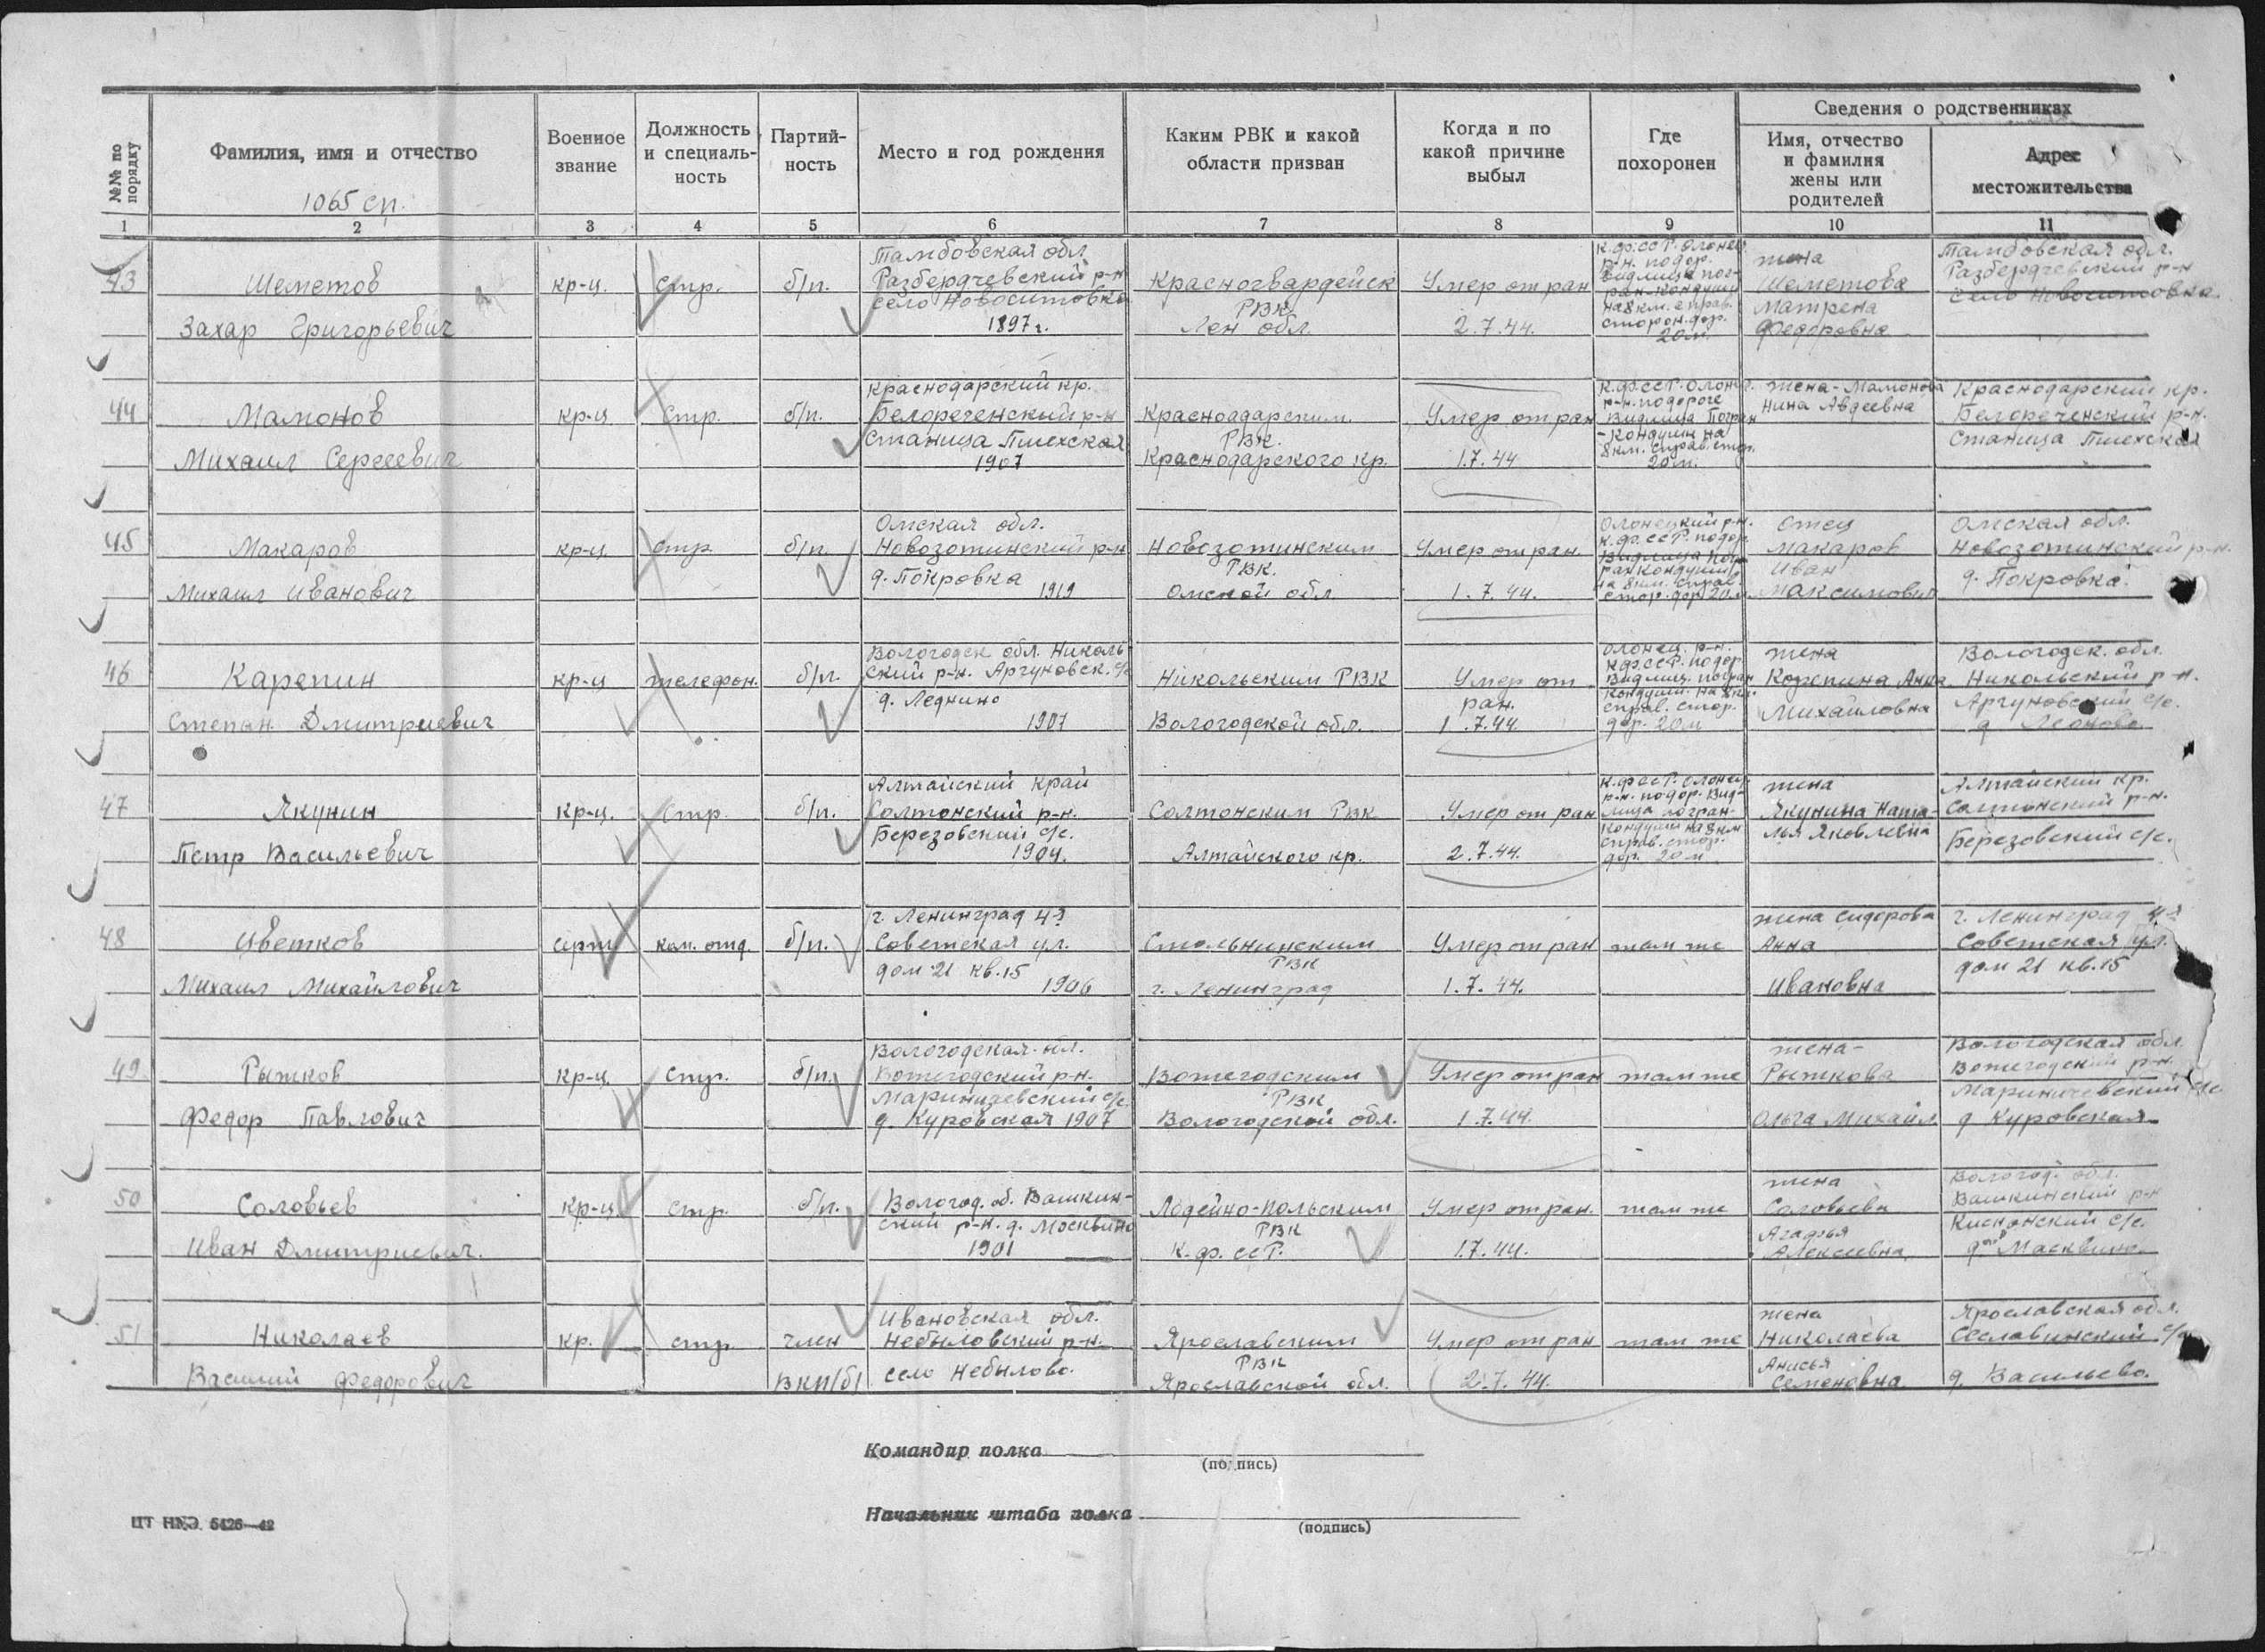 №№ по порядку
Фамилия, имя и отчество
1065 сп.
Военное звание
Должность и специаль-ность
Партий-ность
Место и год рождения
Каким РВК и какой области призван
Когда и по какой причине выбыл
Где похоронен
Сведения о родственниках
Имя, отчество и фамилия жены или родителей
Адрес местожительства
1 2 3 4 5 6 7 8 9 10 11
43
Шеметов
Захар Григорьевич
кр-ц.
стр.
б/п.
Тамбовская обл.
Разбердчевский р-н
село Новоситовка
1897 г.
Красногвардейск
РВК.
Лен обл.
Умер от ран
2.7.44.
К.ф.ССР. Олонец.
р-н. подор.
Видлица пог-
ран-кондуши
на 8 км. с прав.
сторон. дор.
20 м.
жена
Шеметова
Матрена
Федоровна
Тамбовская обл.
Разбердчевский р-н
село Новоситовка
44
Мамонов
Михаил Сергеевич
кр-ц
стр.
б/п.
Краснодарский кр.
Белореченский р-н
станица Пшехская
1907
Красноадарским
РВК.
Краснодарского кр.
Умер от ран
1.7.44
К.ф.ССР. Олонец.
р-н. подороге
Видлица Погран
-кондуши на
8 км. справ. стор.
20 м.
жена-Мамонова
Нина Авдеевна
Краснодарский кр.
Белореченский р-н.
станица Пшехская
45
Макаров
Михаил Иванович
кр-ц.
стр
б/п.
Омская обл.
Новозотинский р-н
д. Покровка
1919
Новозотинским
РВК.
Омской обл
Умер от ран.
1.7.44.
Олонецкий р-н.
к.ф.ССР. подор.
Видлица пог-
ран кондуши
на 8 км. справ.
стор. дор. 20 м.
отец
Макаров
Иван
Максимович
Омская обл.
Новозотинский р-н.
д. Покровка.
46
Карепин
Степан Дмитриевич
кр-ц
телефон.
б/п.
Вологодск обл. Николь-
ский р-н. Аргуновск. с/с
д. Леднино
1907
Никольским РВК
Вологодской обл.
Умер от
ран.
1.7.44.
Олонец. р-н.
к.ф.ССР. подор
Видлиц. погран
кондуш. на 8 км.
справ. стор.
дор. 20 м
жена
Корепина Анна
Михайловна
Вологодск. обл.
Никольский р-н.
Аргуновский с/с.
д Леоново
47
Якунин
Петр Васильевич
кр-ц.
стр.
б/п.
Алтайский край
Солтонский р-н.
Березовский с/с.
1904.
Солтонским РВК
Алтайского кр.
Умер от ран
2.7.44.
К.ф.ССР. Олонец.
р-н. подор. Вид-
лица погран-
кондуши на 8 км
справ. стор.
дор. 20 м
жена
Якунина Ната-
лья Яковлевна
Алтайский кр.
Солтонский р-н.
Березовский с/с.
48
Цветков
Михаил Михайлович
серж
ком. отд.
б/п.
г. Ленинград 4я
Советская ул.
дом 21 кв. 15
1906
Смольнинским
РВК
г. Ленинград
Умер от ран
1.7.44.
там же
жена Сидорова
Анна
Ивановна
г. Ленинград 4я
Советская ул.
дом 21 кв. 15
49
Рыжков
Федор Павлович
кр-ц.
стр.
б/п.
Вологодская обл.
Вожегодский р-н.
Маринизевский с/с.
д. Куровская 1907
Вожегодским
РВК
Вологодской обл.
Умер от ран
1.7.44.
там же
жена-
Рыжкова
Ольга Михайл.
Вологодская обл.
Вожегодский р-н.
Мариничевский с/с.
д Куровская
50
Соловьев
Иван Дмитриевич.
кр-ц
стр.
б/п.
Вологод. об. Вашкин-
ский р-н. д. Москвино
1901
Лодейно-Польским
РВК
К.ф.ССР.
Умер от ран.
1.7.44.
там же
жена
Соловьева
Агафья
Алексеевна
Вологод. обл.
Вашкинский р-н
Киснонский с/с.
д Масквино.
51
Николаев
Василий Федорович
кр.
стр
член
ВКП/б/
Ивановская обл.
Небыловский р-н.
село Небылово.
Ярославским
РВК
Ярославской обл.
Умер от ран
2.7.44.
там же
жена
Николаева
Анисья
Семеновна
Ярославская обл.
Сеславинский с/с
д. Васильево.
Командир полка
(подпись)
Начальник штаба полка
(подпись)
ЦТ НКО. 5426—42